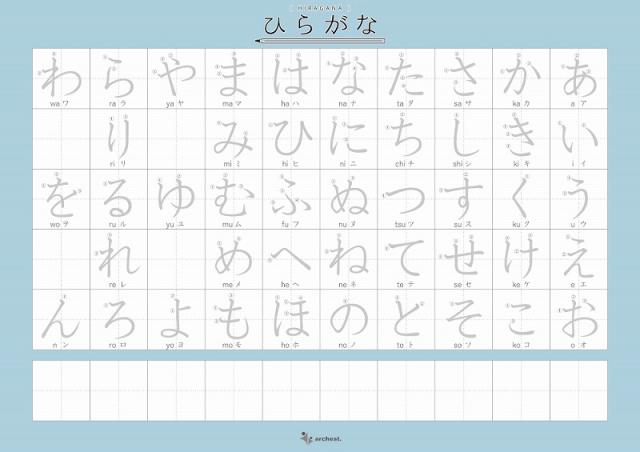 HIRAGANA
ひらがな
わ ら や ま は な た さ か あ
wa ワ ra ラ ya ヤ ma マ ha ハ na ナ ta タ sa サ ka カ a ア
り み ひ に ち し き い
ri リ mi ミ hi ヒ ni ニ chi チ shi シ ki キ i イ
を る ゆ む ふ ぬ つ す く う
wo ヲ ru ル yu ユ mu ム fu フ nu ヌ tsu ツ su ス ku ク u ウ
れ め へ ね て せ け え
re レ me メ he ヘ ne ネ te テ se セ ke ケ e エ
ん ろ よ も ほ の と そ こ お
n ン ro ロ yo ヨ mo モ ho ホ no ノ to ト so ソ ko コ o オ
archest.